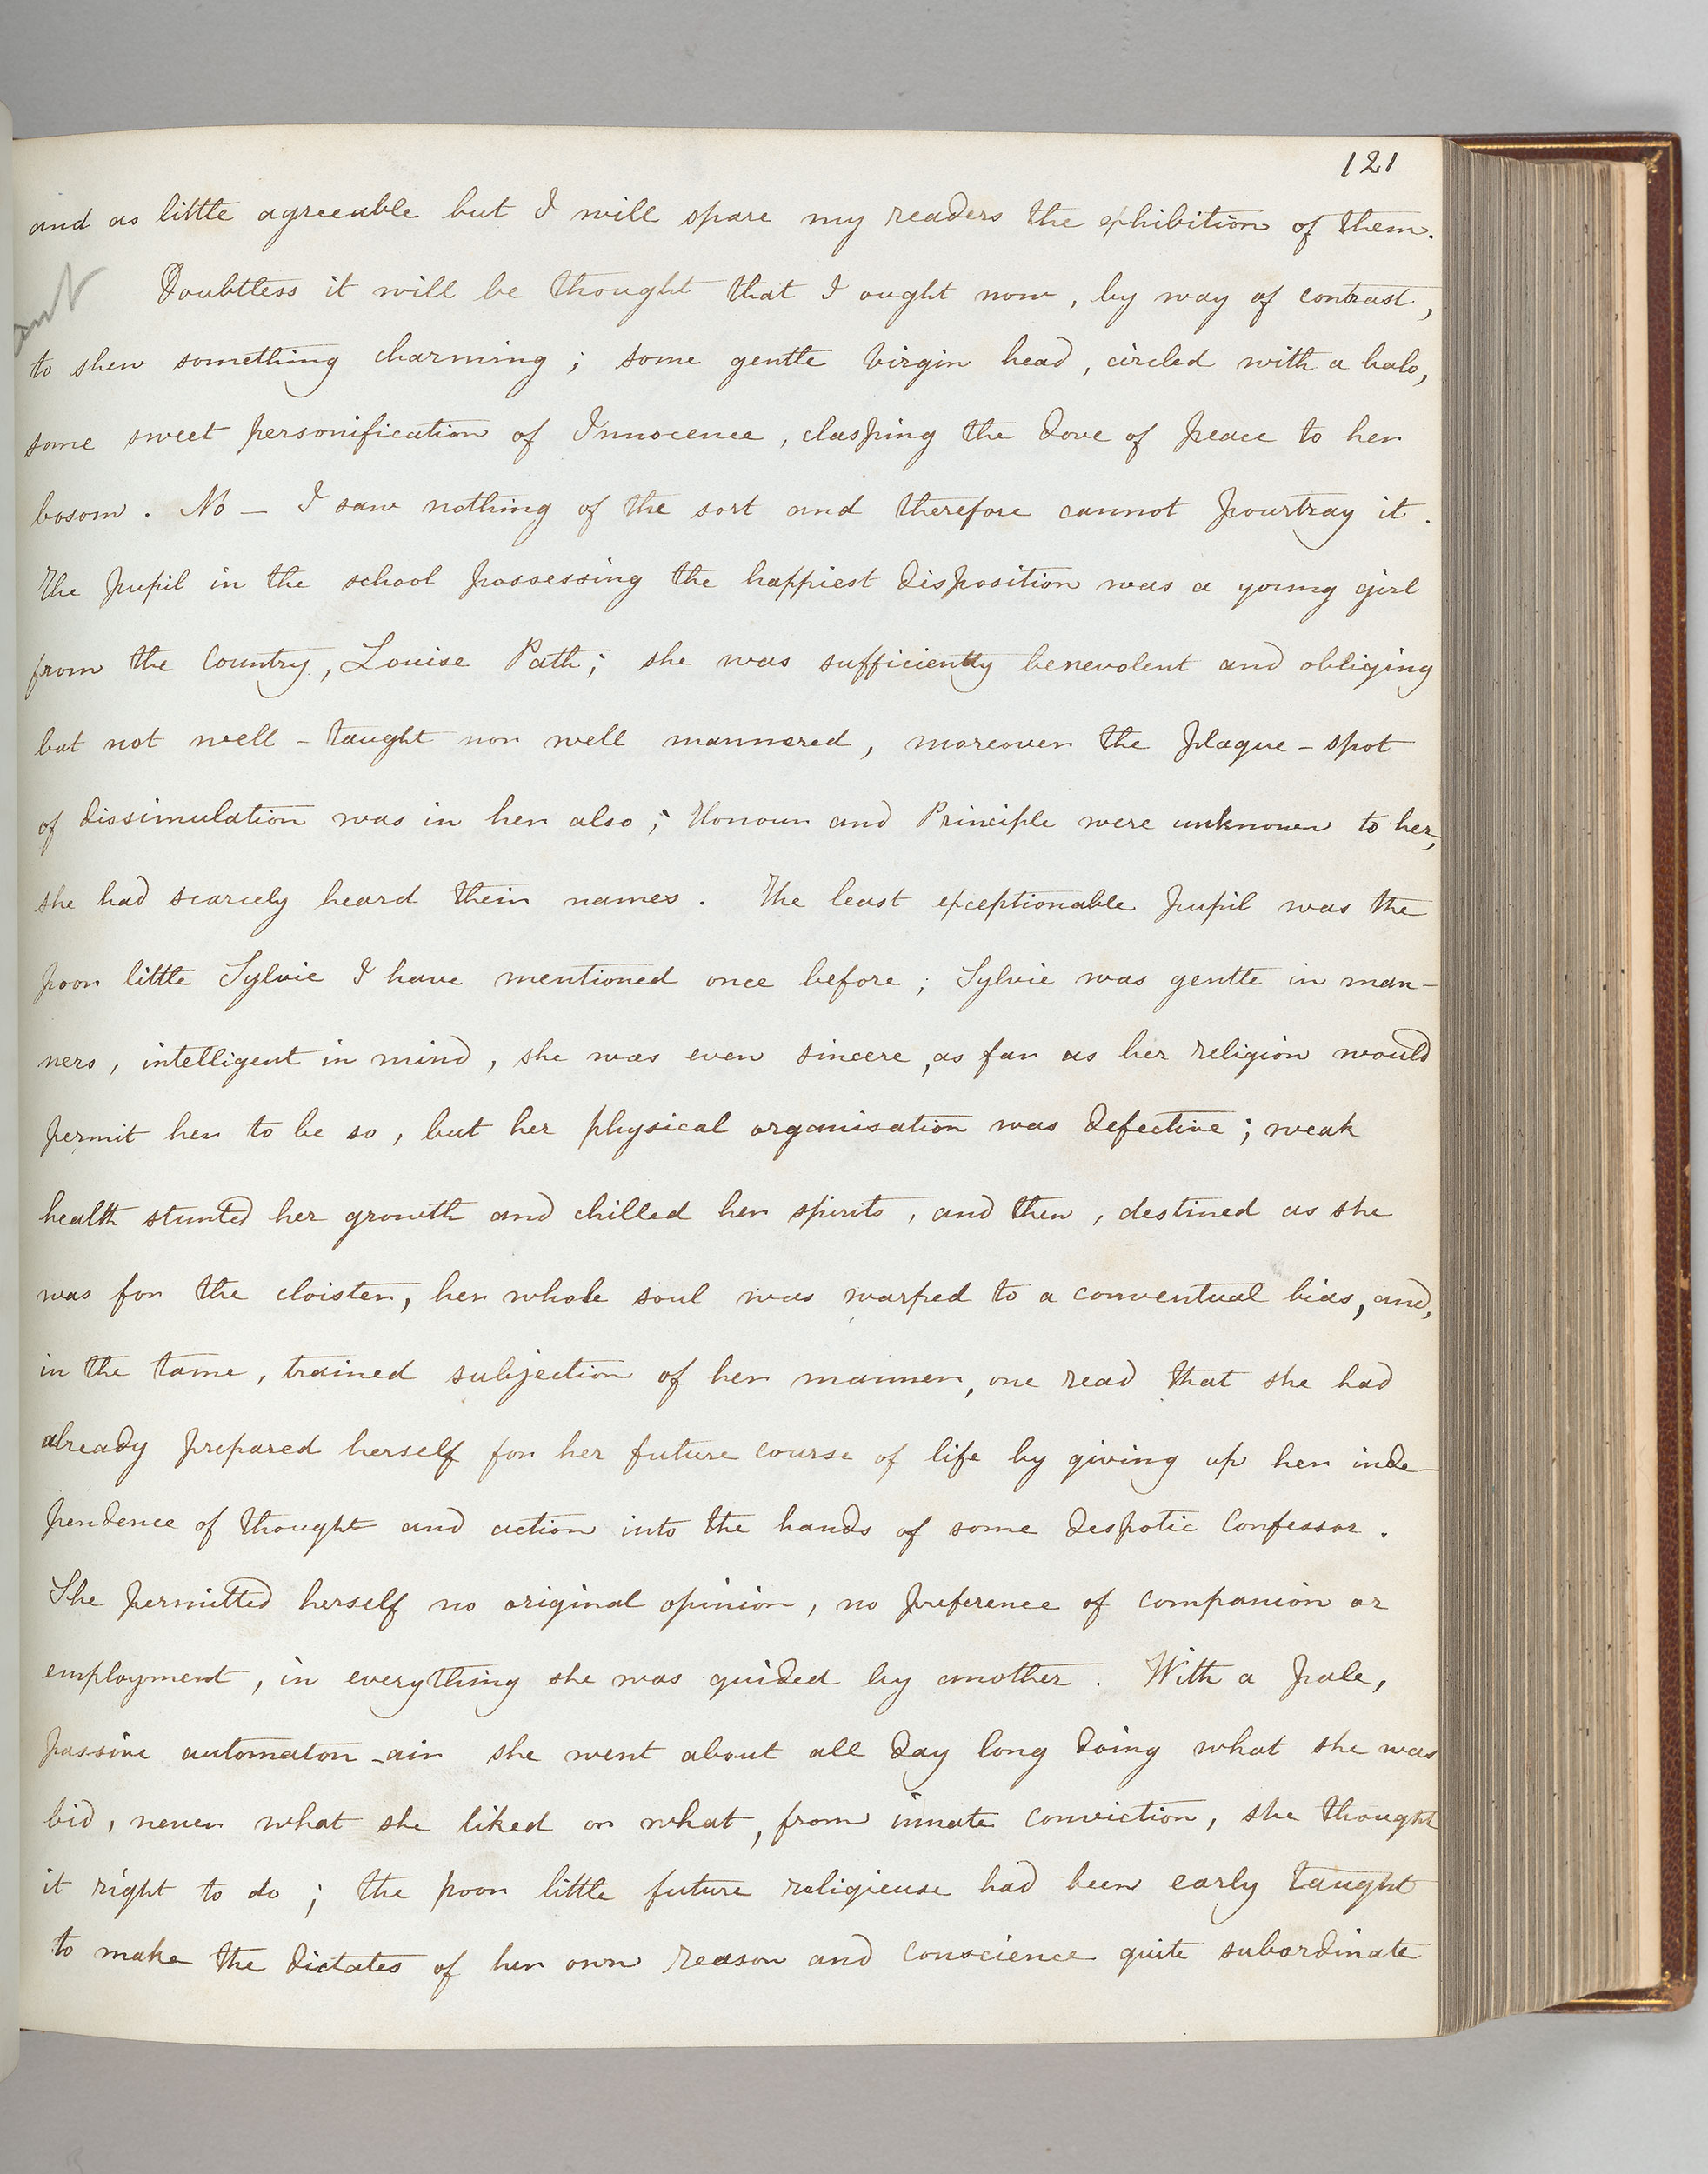 121
and as little agreeable but I will spare my readers the exhibition of them.
Doubtless it will be thought that I ought now, by way of contrast,
to shew something charming; some gentle virgin head, circled with a halo,
some sweet personification of Innocence, clasping the dove of peace to her
bosom. No — I saw nothing of the sort and therefore cannot pourtray it.
The pupil in the school possessing the happiest disposition was a young girl
from the country, Louise Path; she was sufficiently benevolent and obliging
but not well-taught nor well mannered, moreover the plague-spot
of dissimulation was in her also; Honour and Principle were unknown to her,
she had scarcely heard their names. The least exceptionable pupil was the
poor little Sylvie I have mentioned once before; Sylvie was gentle in man-
ners, intelligent in mind, she was even sincere, as far as her religion would
permit her to be so, but her physical organisation was defective; weak
health stunted her growth and chilled her spirits, and then, destined as she
was for the cloister, her whole soul was warped to a conventual bias, and,
in the tame, trained subjection of her manner, one read that she had
already prepared herself for her future course of life by giving up her inde-
pendence of thought and action into the hands of some despotic Confessor.
She permitted herself no original opinion, no preference of companion or
employment, in everything she was guided by another. With a pale,
passive automaton-air she went about all day long doing what she was
bid, never what she liked or what, from innate conviction, she thought
it right to do; the poor little future religieuse had been early taught
to make the dictates of her own reason and conscience quite subordinate